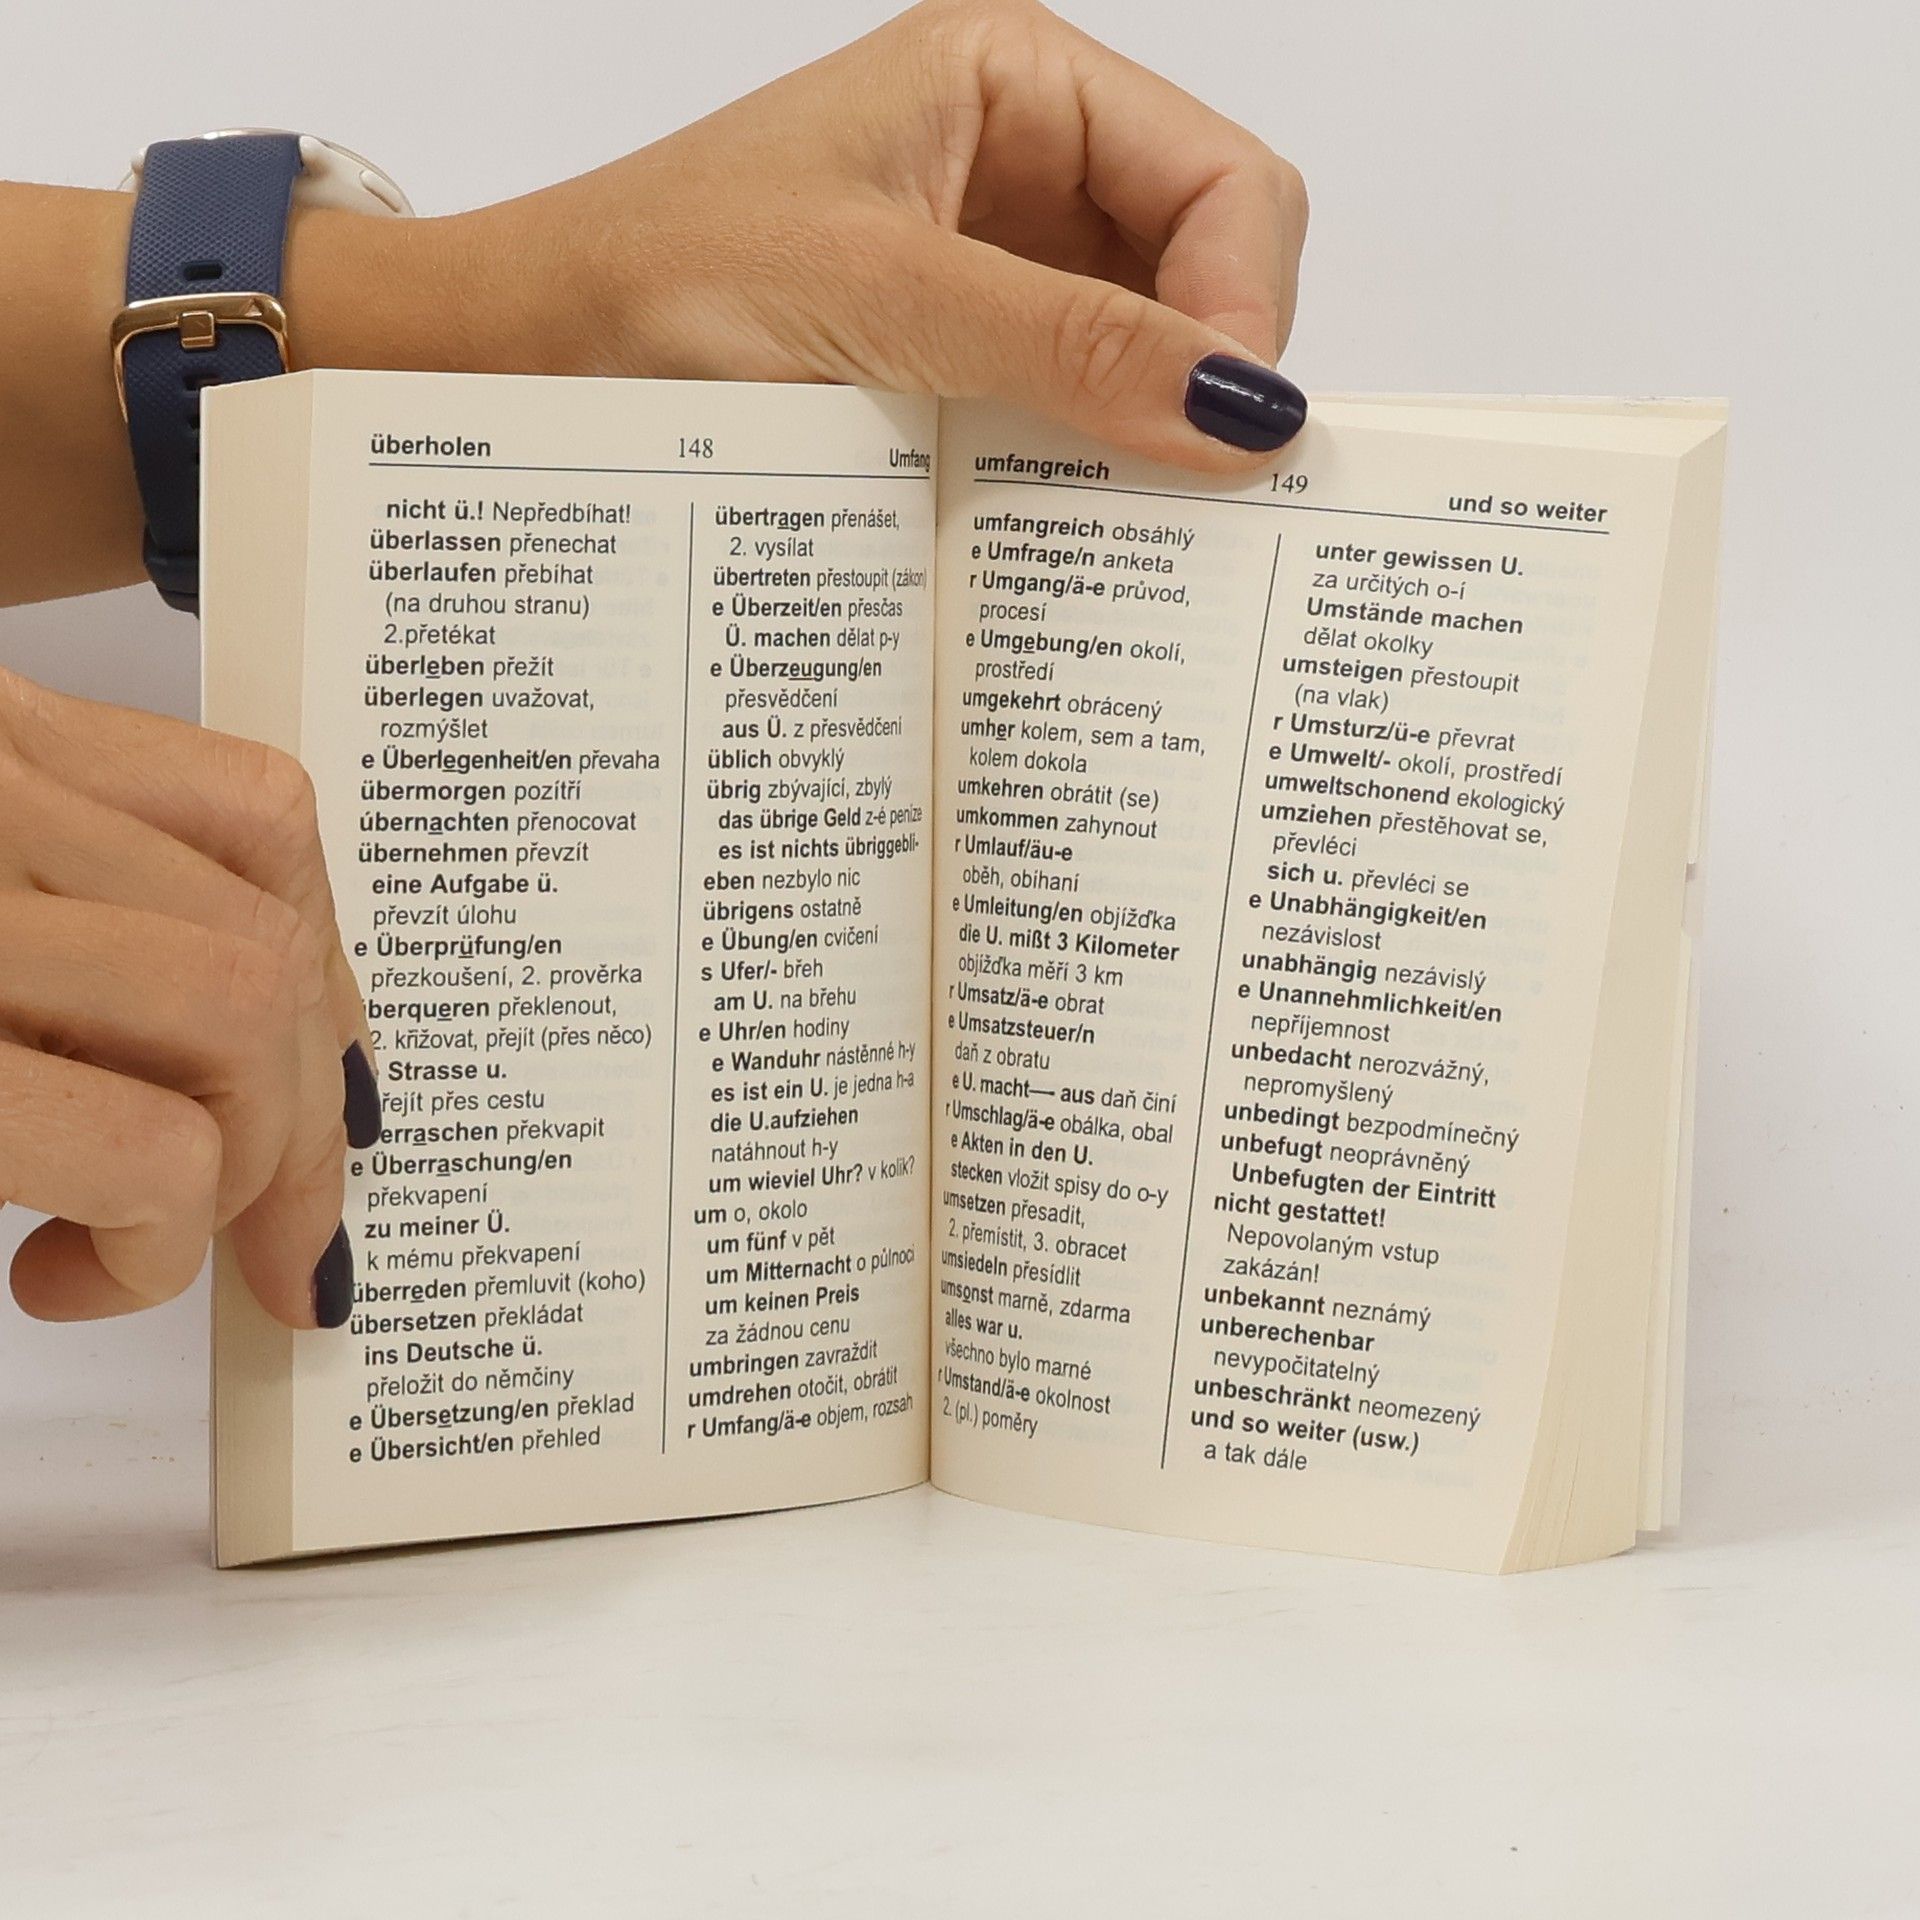 überholen 148 Umfang
nicht ü.! Nepředbíhat!
überlassen přenechat
überlaufen přebíhat
(na druhou stranu)
2.přetékat
überleben přežít
überlegen uvažovat,
rozmýšlet
e Überlegenheit/en převaha
übermorgen pozítří
úbernachten přenocovat
übernehmen převzít
eine Aufgabe ü.
převzít úlohu
e Überprüfung/en
přezkoušení, 2. prověrka
berqueren překlenout,
2. křižovat, přejít (přes něco)
Strasse u.
řejít přes cestu
erraschen překvapit
e Überraschung/en
překvapení
zu meiner Ü.
k mému překvapení
überreden přemluvit (koho)
übersetzen překládat
ins Deutsche ü.
přeložit do němčiny
e Übersetzung/en překlad
e Übersicht/en přehled
übertragen přenášet,
2. vysílat
übertreten přestoupit (zákon)
e Überzeit/en přesčas
Ü. machen dělat p-y
e Überzeugung/en
přesvědčení
aus Ü. z přesvědčení
üblich obvyklý
übrig zbývající, zbylý
das übrige Geld z-é peníze
es ist nichts übriggebli-
eben nezbylo nic
übrigens ostatně
e Übung/en cvičení
s Ufer/- břeh
am U. na břehu
e Uhr/en hodiny
e Wanduhr nástěnné h-y
es ist ein U. je jedna h-a
die U.aufziehen
natáhnout h-y
um wieviel Uhr? v kolik?
um o, okolo
um fünf v pět
um Mitternacht o půlnoci
um keinen Preis
za žádnou cenu
umbringen zavraždit
umdrehen otočit, obrátit
r Umfang/ä-e objem, rozsah
umfangreich 149 und so weiter
umfangreich obsáhlý
e Umfrage/n anketa
r Umgang/ä-e průvod,
procesí
e Umgebung/en okolí,
prostředí
umgekehrt obrácený
umher kolem, sem a tam,
kolem dokola
umkehren obrátit (se)
umkommen zahynout
r Umlauf/äu-e
oběh, obíhaní
e Umleitung/en objížďka
die U. mißt 3 Kilometer
objížďka měří 3 km
r Umsatz/ä-e obrat
e Umsatzsteuer/n
daň z obratu
e U. macht— aus daň činí
r Umschlag/ä-e obálka, obal
e Akten in den U.
stecken vložit spisy do o-y
umsetzen přesadit,
2. přemístit, 3. obracet
umsiedeln přesídlit
umsonst marně, zdarma
alles war u.
všechno bylo marné
r Umstand/ä-e okolnost
2. (pl.) poměry
unter gewissen U.
za určitých o-í
Umstände machen
dělat okolky
umsteigen přestoupit
(na vlak)
r Umsturz/ü-e převrat
e Umwelt/- okolí, prostředí
umweltschonend ekologický
umziehen přestěhovat se,
převléci
sich u. převléci se
e Unabhängigkeit/en
nezávislost
unabhängig nezávislý
e Unannehmlichkeit/en
nepříjemnost
unbedacht nerozvážný,
nepromyšlený
unbedingt bezpodmínečný
unbefugt neoprávněný
Unbefugten der Eintritt
nicht gestattet!
Nepovolaným vstup
zakázán!
unbekannt neznámý
unberechenbar
nevypočitatelný
unbeschränkt neomezený
und so weiter (usw.)
a tak dále